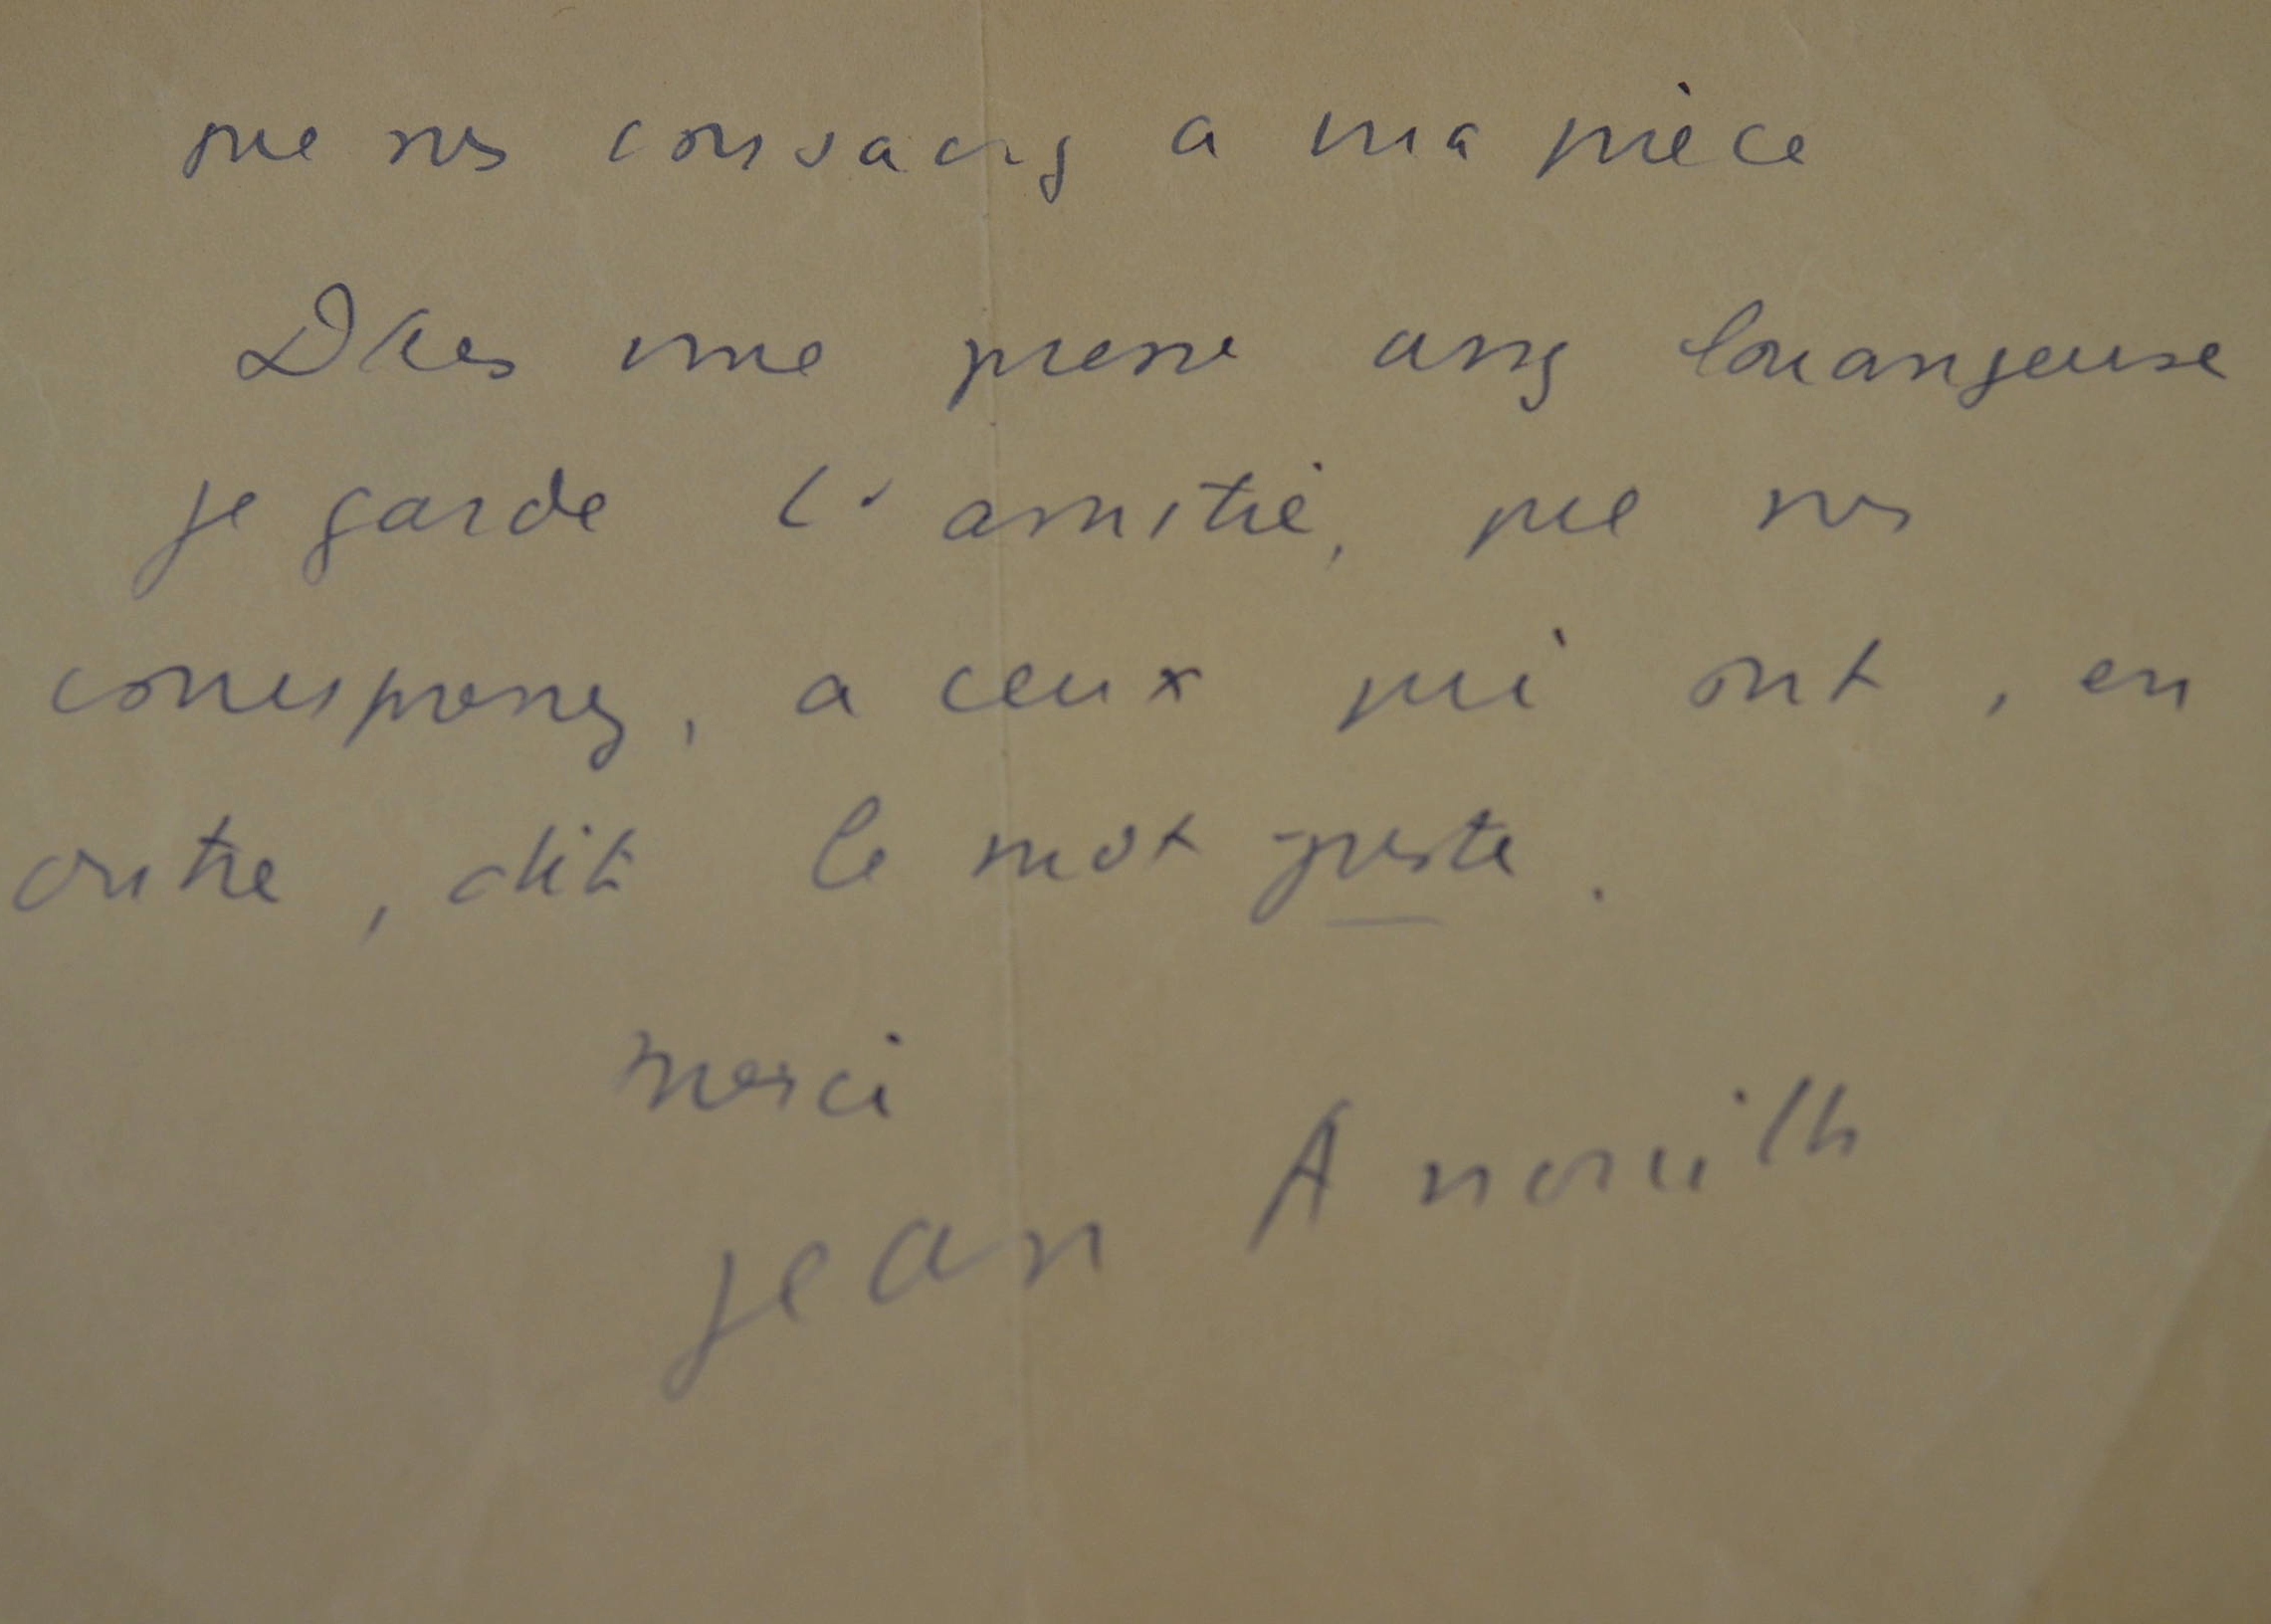 que vs consacrez a ma pièce
Dans une presse assez louangeuse
je garde l'amitié, que vs
, a ceux qui ont, en
outre, dit le mot juste.
merci
jean Anouilh